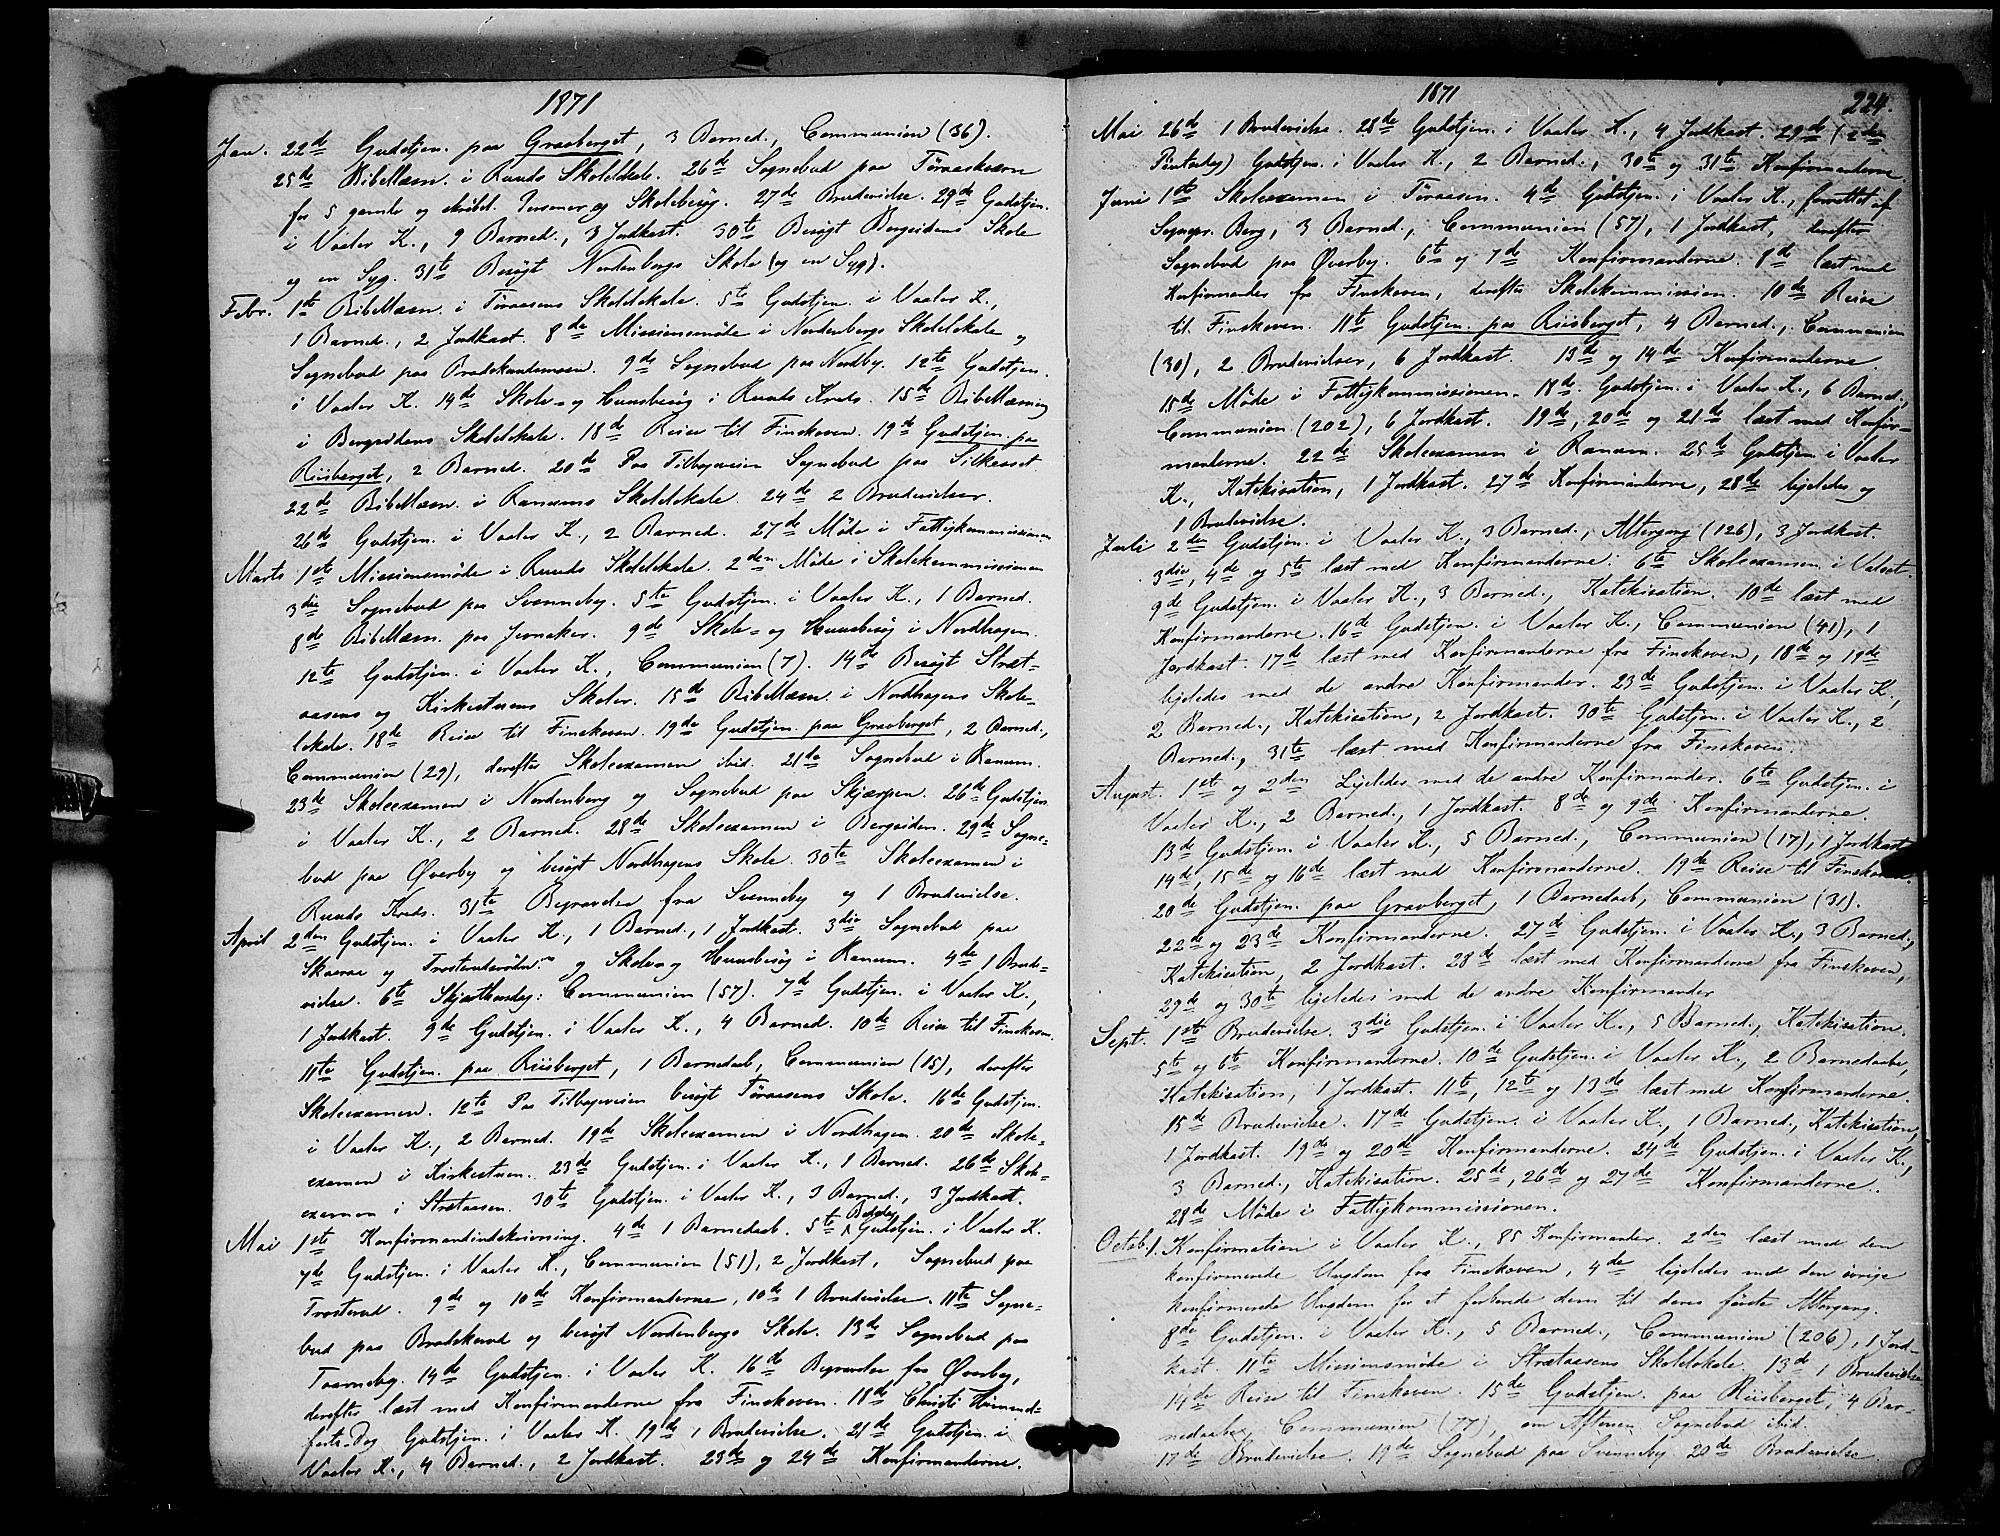 1871
Jan. 22de Gudstjen. paa Gravberget, 3 Barned., Communion (36).
25de Bibellæsn. i Ruuds Skolelokale. 26de Sognebud paa Töraaskværn
for 5 gamle og skröbel. Personer og Skolebesög. 27de Brudevielse. 29de Gudstjen.
i Vaaler K., 9 Barned., 3 Jordkast. 30te Besögt Bergsidens Skole
og en Syg. 31te Besögt Nordenbergs Skole (og en Syg).
Febr. 1ste Bibellæsn. i Töraasens Skolelokale. 5te Gudstjen. i Vaaler K.,
1 Barned., 2 Jordkast. 8de Missionsmöde i Nordenbergs Skolelokale og
Sognebud paa Bradskandmoen. 9de Sognebud paa Nordby. 12te Gudstjen.
i Vaaler K. 14de Skole- og Huusbesög i Ruuds Kreds. 15de Bibellæsning
i Bergsidens Skolelokale. 18de Reise til Finskoven. 19de Gudstjen. paa
Riisberget, 2 Barned. 20de Paa Tilbageveien Sognebud paa Silkeaset.
22de Bibellæsn. i Ranums Skolelokale. 24de 2 Brudevielser.
26de Gudstjen. i Vaaler K., 2 Barned. 27de Möde i Fattigkommissionen
Marts 1ste Missionsmöde i Ruuds Skolelokale. 2den Möde i Skolekommissionen
3die Sognebud paa Svenneby. 5te Gudstjen. i Vaaler K., 1 Barned.
8de Bibellæsn. paa Jevnaker. 9de Skole- og Huusbesög i Nordhagen.
12te Gudstjen. i Vaaler K., Communion (7). 14de Besögt Stræt-
aasens og Kirkestuens Skoler. 15de Bibellæsn. i Nordhagens Skole-
lokale. 18de Reise til Finskoven. 19de Gudstjen. paa Gravberget, 2 Barned.,
Communion (29), derefter Skoleexamen ibid. 21de Sognebud i Ranum.
23de Skoleexamen i Nordenberg og Sognebud paa Skjærpen. 26de Gudstjen.
i Vaaler K., 2 Barned. 28de Skoleexamen i Bergsiden. 29de Sogne-
bud paa Øverby og besögt Nordhagens Skole. 30te Skoleexamen i
Ruuds Kreds. 31te Begravelse fra Svenneby og 1 Brudevielse.
April 2den Gudstjen. i Vaaler K., 1 Barned., 1 Jordkast. 3die Sognebud paa
Skaaraa og og Skole og Huusbesög i Ranum. 4de 1 Brude-
vielse. 6te Skjærthorsdag: Communion (57). 7de Gudstjen. i Vaaler K.,
1 Jordkast. 9de Gudstjen. i Vaaler K., 4 Barned. 10de Reise til Finskoven.
11te Gudstjen. paa Riisberget, 1 Barnedaab, Communion (15), derefter
Skoleexamen. 12te Paa Tilbageveien besögt Töraasens Skole. 16de Gudstjen.
i Vaaler K., 2 Barned. 19de Skoleexamen i Nordhagen. 20de Skole-
examen i Kirkestuen. 23de Gudstjen. i Vaaler K., 1 Barned. 26de Skole-
examen i Strætaasen. 30te Gudstjen. i Vaaler K., 3 Barned., 3 Jordkast.
Mai 1ste Konfirmandindskrivning. 4de 1 Barnedaab. 5te Bededag Gudstjen. i Vaaler K.
7de Gudstjen. i Vaaler K., Communion (51), 2 Jordkast, Sognebud paa
Trosterud. 9de og 10de Konfirmanderne, 10de 1 Brudevielse. 11te Sogne-
bud paa Bradskerud og besögt Nordenbergs Skole. 13de Sognebud paa
Taarneby. 14de Gudstjen. i Vaaler K. 16de Begravelse fra Øverby,
derefter læst med Konfirmanderne fra Finskoven. 18de Christi Himmel-
farts-Dag Gudstjen. i Vaaler K. 19de 1 Brudevielse. 21de Gudstjen. i
Vaaler K., 4 Barned., 2 Jordkast. 23de og 24de Konfirmanderne.
1871
224.
Mai 26de 1 Brudevielse. 28de Gudstjen. i Vaaler K., 4 Jordkast. 29de (2den
Pintsedag) Gudstjen. i Vaaler K., 2 Barned., 30te og 31te Konfirmanderne.
Juni 1ste Skoleexamen i Töraasen. 4de Gudstjen. i Vaaler K., forrettet af
Sognepr. Berg, 3 Barned., Communion (57), 1 Jordkast, derefter
Sognebud paa Øverby. 6te og 7de Konfirmanderne. 8de læst med
Konfirmander fra Finskoven, derefter Skolekommission. 10de Reise
til Finskoven. 11te Gudstjen. paa Riisberget, 4 Barned., Communion
(30), 2 Brudevielser, 6 Jordkast. 13de og 14de Konfirmanderne.
15de Möde i Fattigkommissionen. 18de Gudstjen. i Vaaler K., 6 Barned.,
Communion (202), 6 Jordkast. 19de, 20de og 21de læst med Konfir-
manderne. 22de Skoleexamen i Ranum. 25de Gudstjen. i Vaaler
K., Katekisation, 1 Jordkast. 27de Konfirmanderne, 28de ligeledes og
1 Brudevielse.
Juli 2den Gudstjen. i Vaaler K., 3 Barned., Altergang (126), 3 Jordkast.
3die, 4de og 5te læst med Konfirmanderne. 6te Skoleexamen i Valset.
9de Gudstjen. i Vaaler K., 3 Barned., Katekisation. 10de læst med
Konfirmanderne. 16de Gudstjen. i Vaaler K., Communion (41), 1
Jordkast. 17de læst med Konfirmanderne fra Finskoven, 18de og 19de
ligeledes med de andre Konfirmander. 23de Gudstjen. i Vaaler K.,
2 Barned., Katekisation, 2 Jordkast. 30te Gudstjen. i Vaaler K., 2
Barned., 31te læst med Konfirmanderne fra Finskoven.
August. 1ste og 2den Ligeledes med de andre Konfirmander. 6te Gudstjen. i
Vaaler K., 2 Barned., 1 Jordkast. 8de og 9de Konfirmanderne.
13de Gudstjen. i Vaaler K., 5 Barned., Communion (17), 1 Jordkast
14de, 15de og 16de læst med Konfirmanderne. 19de Reise til Finskoven.
20de Gudstjen. paa Gravberget, 1 Barnedaab, Communion (31).
22de og 23de Konfirmanderne. 27de Gudstjen. i Vaaler K., 3 Barned.,
Katekisation, 2 Jordkast. 28de læst med Konfirmanderne fra Finskoven,
29de og 30te ligeledes med de andre Konfirmander
Sept. 1ste Brudevielse. 3die Gudstjen. i Vaaler K., 5 Barned., Katekisation.
5te og 6te Konfirmanderne. 10de Gudstjen. i Vaaler K., 2 Barnedaabe,
Katekisation, 1 Jordkast. 11te, 12te og 13de læst med Konfirmanderne.
15de Brudevielse. 17de Gudstjen. i Vaaler K., 1 Barned., Katekisation,
1 Jordkast. 19de og 20de Konfirmanderne. 24de Gudstjen. i Vaaler K.,
3 Barned., Katekisation. 25de, 26de og 27de Konfirmanderne.
28de Möde i Fattigkommissionen.
Octob. 1. Konfirmation i Vaaler K., 85 Konfirmander. 2den læst med den
konfirmerede Ungdom fra Finskoven, 4de ligeledes med den övrige
konfirmerede Ungdom for at forberede dem til deres förste Altergang.
8de Gudstjen. i Vaaler K., 5 Barned., Communion (206), 1 Jord-
kast. 11te Missionsmöde i Strætaasens Skolelokale. 13de 1 Brudevielse.
14de Reise til Finskoven. 15de Gudstjen. paa Riisberget, 4 Bar-
nedaabe, Communion (77), om Aftenen Sognebud ibid.
17de Brudevielse. 19de Sognebud paa Svenneby. 20de Brudevielse.